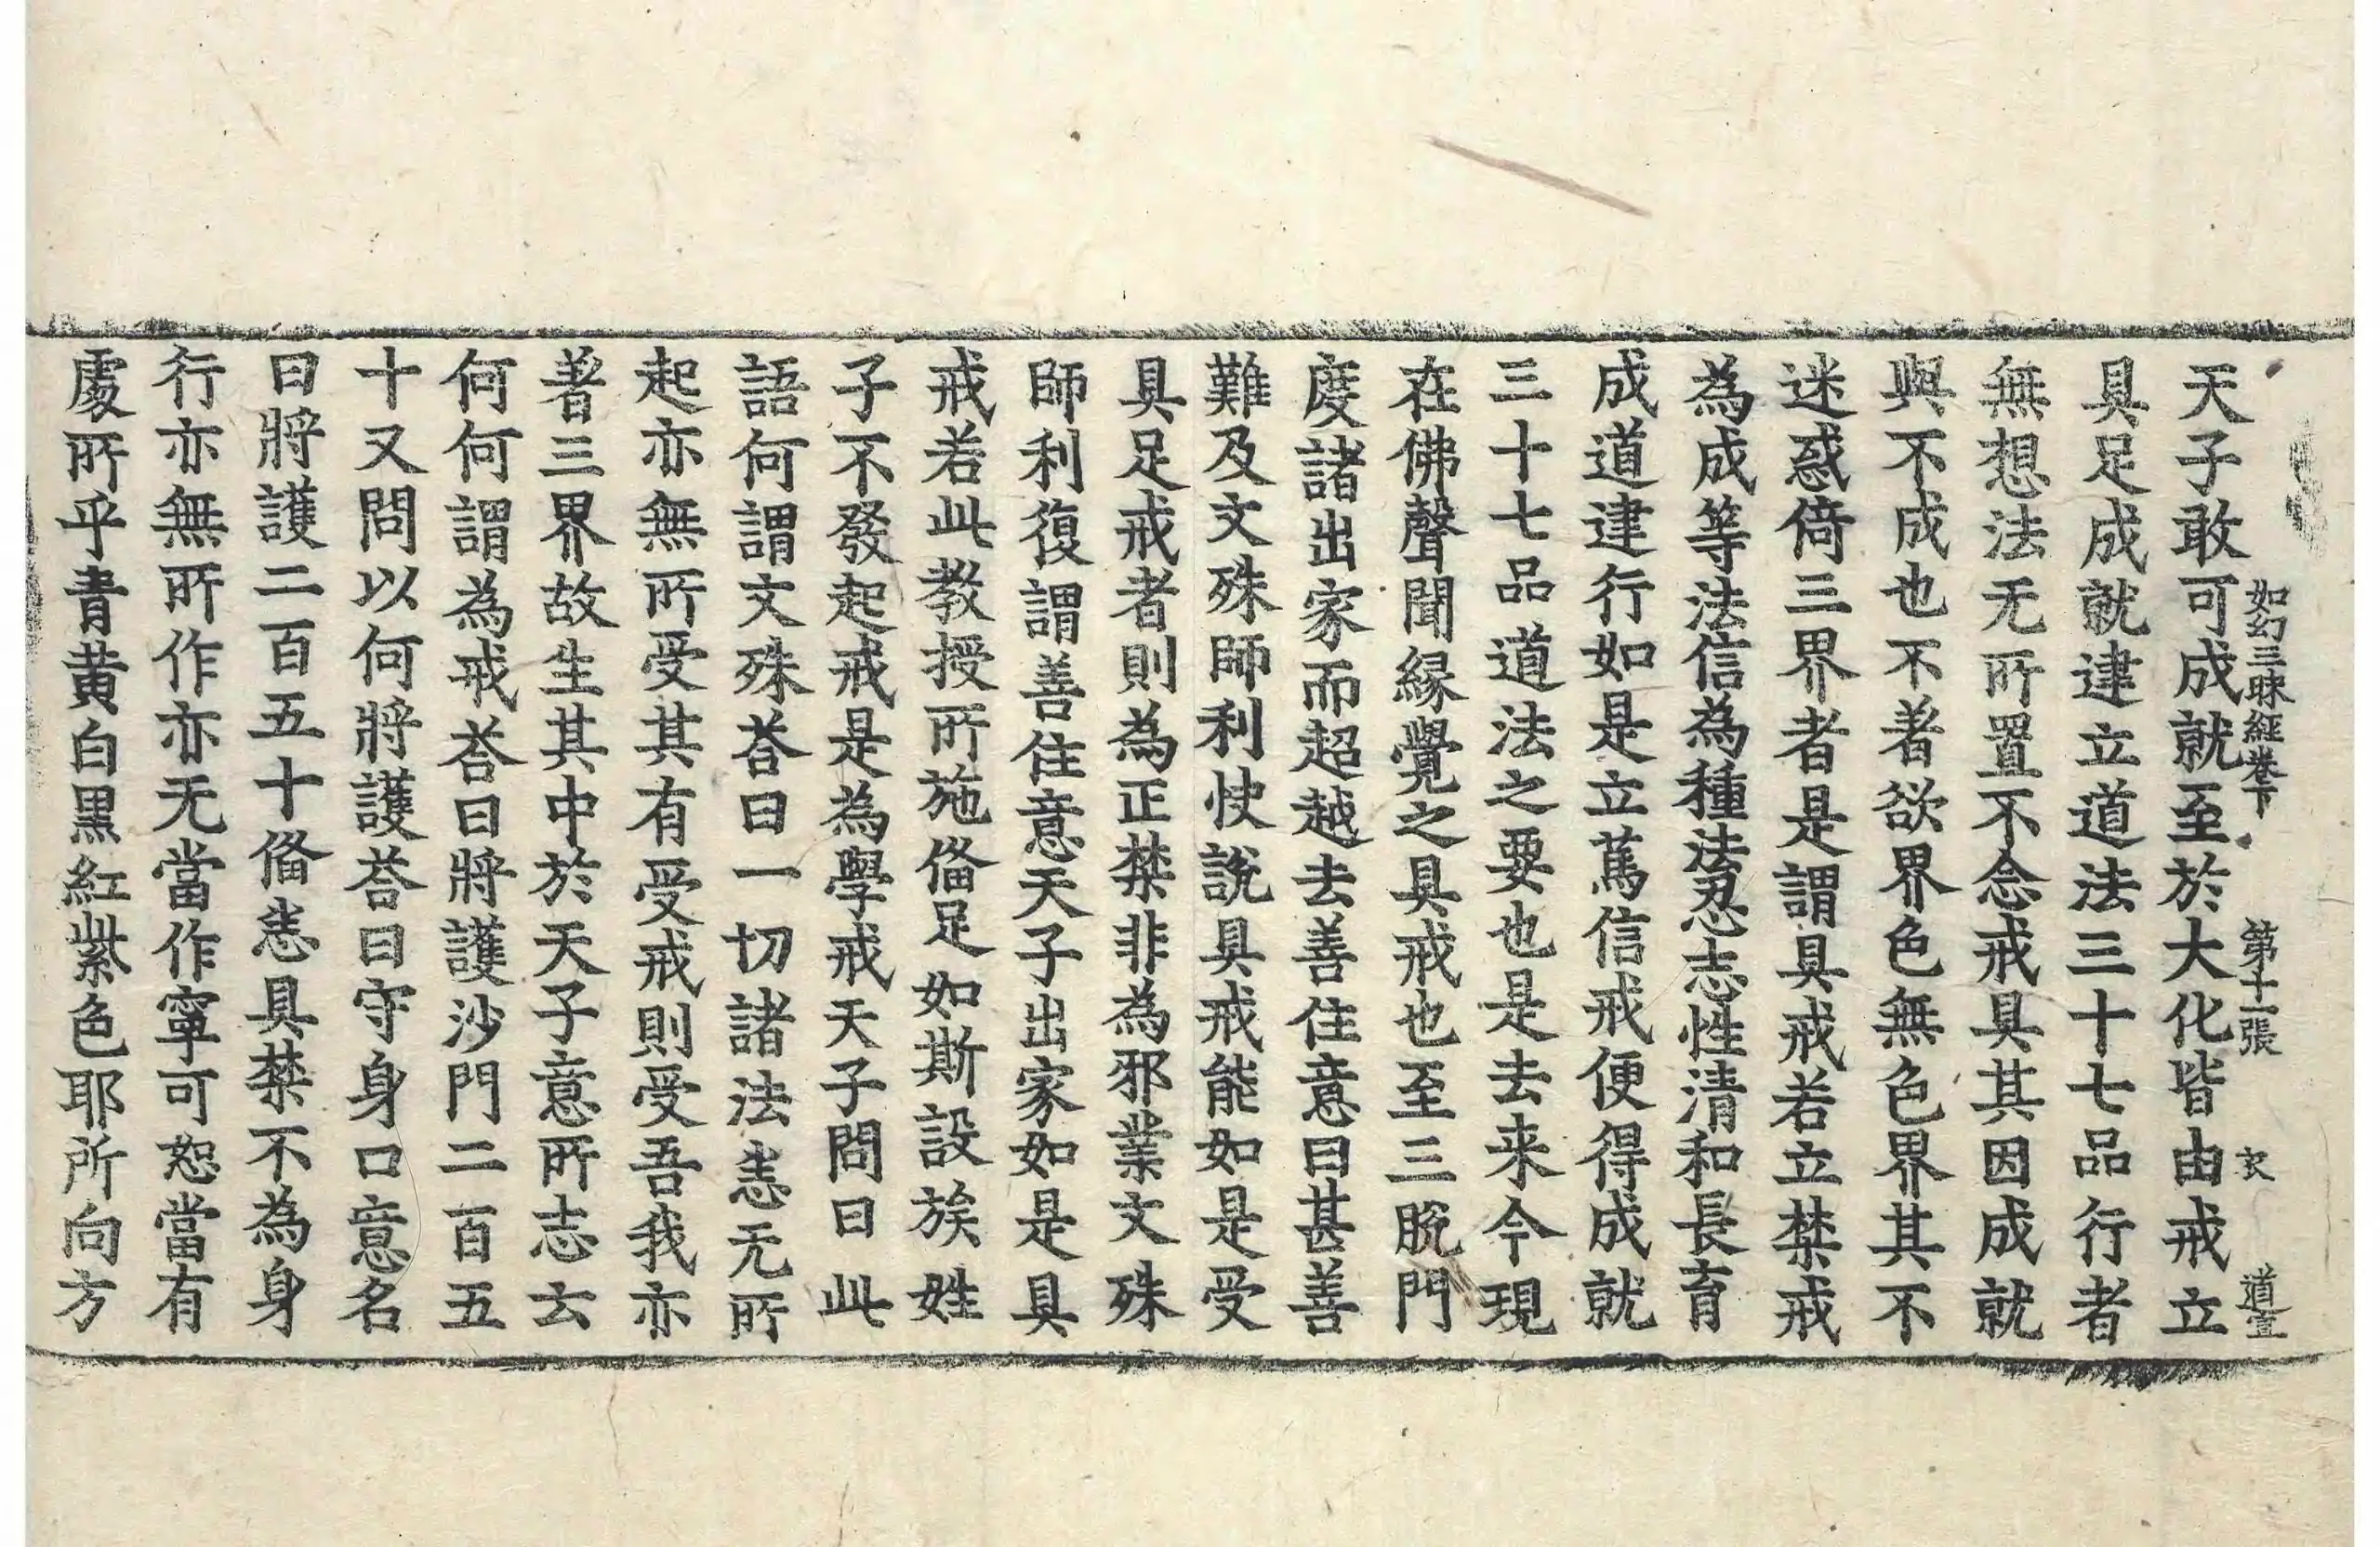 如幻三昧經卷下 第十一張 衣 道宣
天子敢可成就至於大化皆由戒立
具足成就建立道法三十七品行者
無想法无所置不念戒具其因成就
與不成也不著欲界色無色界其不
迷惑倚三界者是謂具戒若立禁戒
為成等法信為種法忍志性清和長育
成道建行如是立萬信戒便得成就
三十七品道法之要也是去来今現
在佛聲聞緣覺之具戒也至三脫門
度諸出家而超越去善住意曰甚善
難及文殊師利快說具戒能如是受
具足戒者則為正禁非為邪業文殊
師利復謂善住意天子出家如是具
戒若此教授所施俻足如斯設族姓
子不發起戒是為學戒天子問曰此
語何謂文殊荅曰一切諸法恚无所
起亦無所受其有受戒則受吾我亦
著三界故生其中於天子意所志云
何何謂為戒荅曰將護沙門二百五
十又問以何將護荅曰守身口意名
曰將護二百五十俻恚具禁不為身
行亦無所作亦无當作寧可恕當有
處所乎青黃白黑紅紫色耶所向方